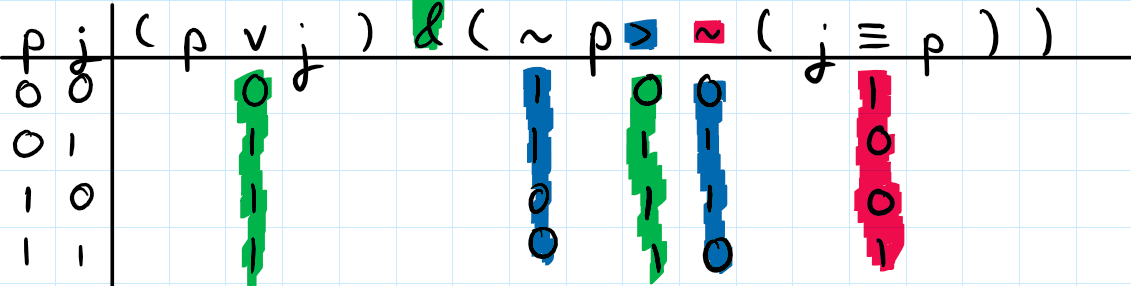 p j ( p ∨ j ) & ( ~ p > ~ ( j ≡ p ) )
0 0 0 1 0 0 1
0 1 1 1 1 1 0
1 0 1 0 1 1 0
1 1 1 0 1 0 1